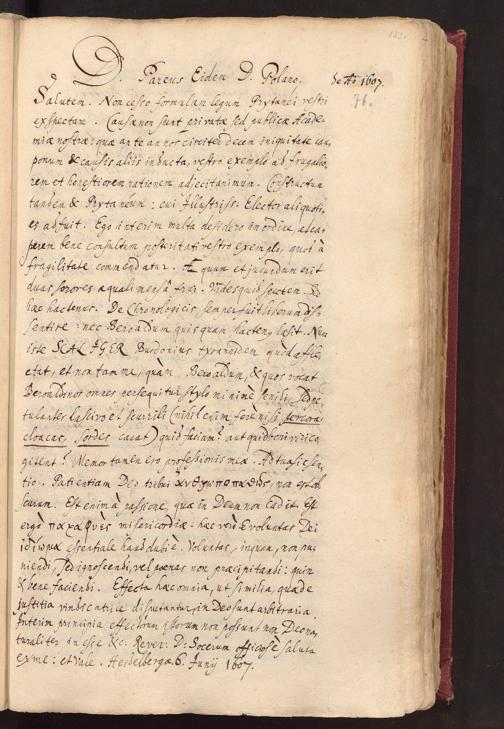 123.
D. Pareus Eidem D. Polano. de Ao 1607.
76.
Salutem. Non cesso formulam legum Prytanei vestri
exspectare. Causæ non sunt privatæ sed publicæ Acade
miæ nostræ: quæ ante annos circiter decem iniquitate tem
porum & causis aliis inducta, vestro exemplo ad frugalio
rem et honestiorem rationem adjecit animum. Constructum
tandem & Prytaneum: cui Illustriss: Elector aliquoti
es adfuit. Ego interim multa desidero in ordine, et cas
bene consultum posteritati vestro exemplo, quod à
fragilitate commendatur. quum et jucundum erit
duas sorores æquali mensâ frui. Vides quid spectem. &
hæc hactenus. De Chronologicis semper fuit liberum diss
sentire: nec Beroaldum quisquam hactenus læsit. Neu
iste SCALIGER Burdonius tyrannidem quòd affec
etat, et non tam me, quàm Beroaldum, & quos vocat
Beroaldinos omnes persequitur stylo minime senili, sed pe
tulanter lascivo et scurrili (nihil enim fere nisi stercora
cloacas, sordes cacat) quid faciam? aut quid boni viri co
gitent? Memor tamen ero professionis meæ. Ad tuas
tio. Patientiam Deo tribui ἀνθρωποπαθῶς, non est ob
scurum. Est enim à passione, quæ in Deum non cadit. Est
ergò misericordiæ: hæc verò & voluntas Dei
ἰδίωμα essentiale haud dubiè. Voluntas, inquam, non pu
niendi, sed ignoscendi, vel pœnas non præcipitandi: quin
& bene faciendi. Effecta hæc omnia, ut similia, quæ de
justitia vindicatrice disputantur, in Deo sunt arbitraria.
Interim principia effectorum istorum non possunt non Deo na
turaliter inesse &c. Rever: D: Socerum officiosè saluta
ex me: et vale. Heidelbergæ 6. Junij 1607.